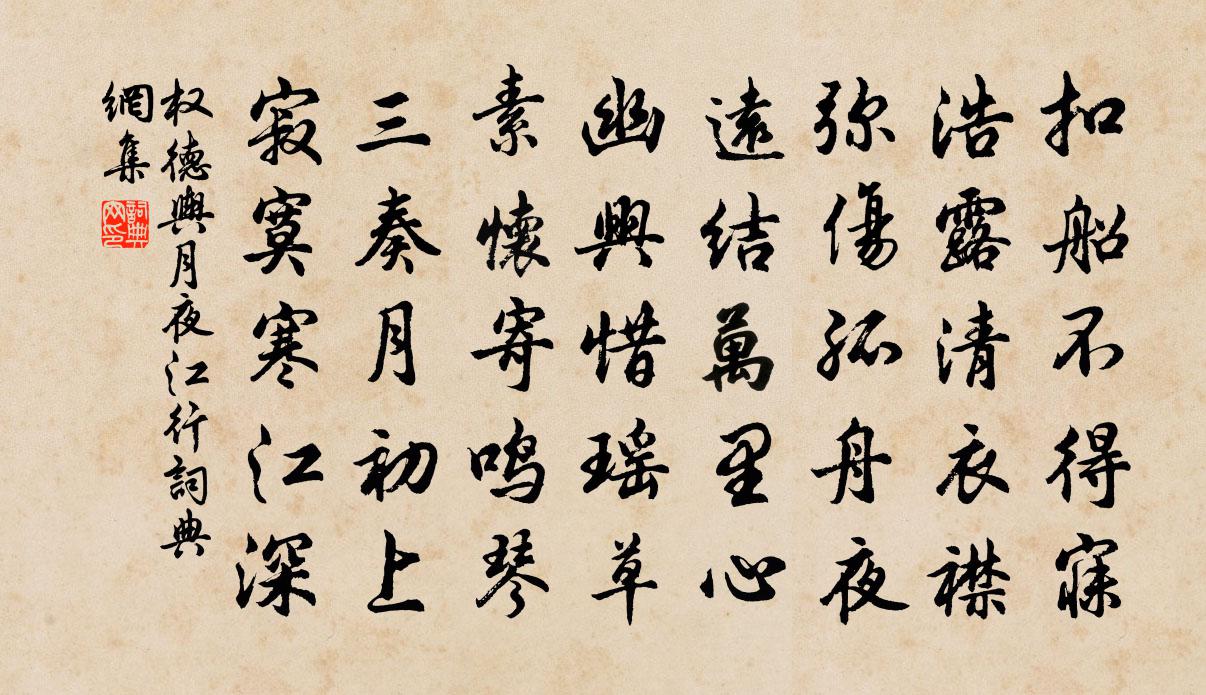 扣船不得寐
浩露清衣襟
弥傷孤舟夜
遠結萬里心
幽興惜瑶草
素懷寄鸣琴
三奏月初上
寂寞寒江深
权德輿月夜江行詞典
網集
詞典
网印